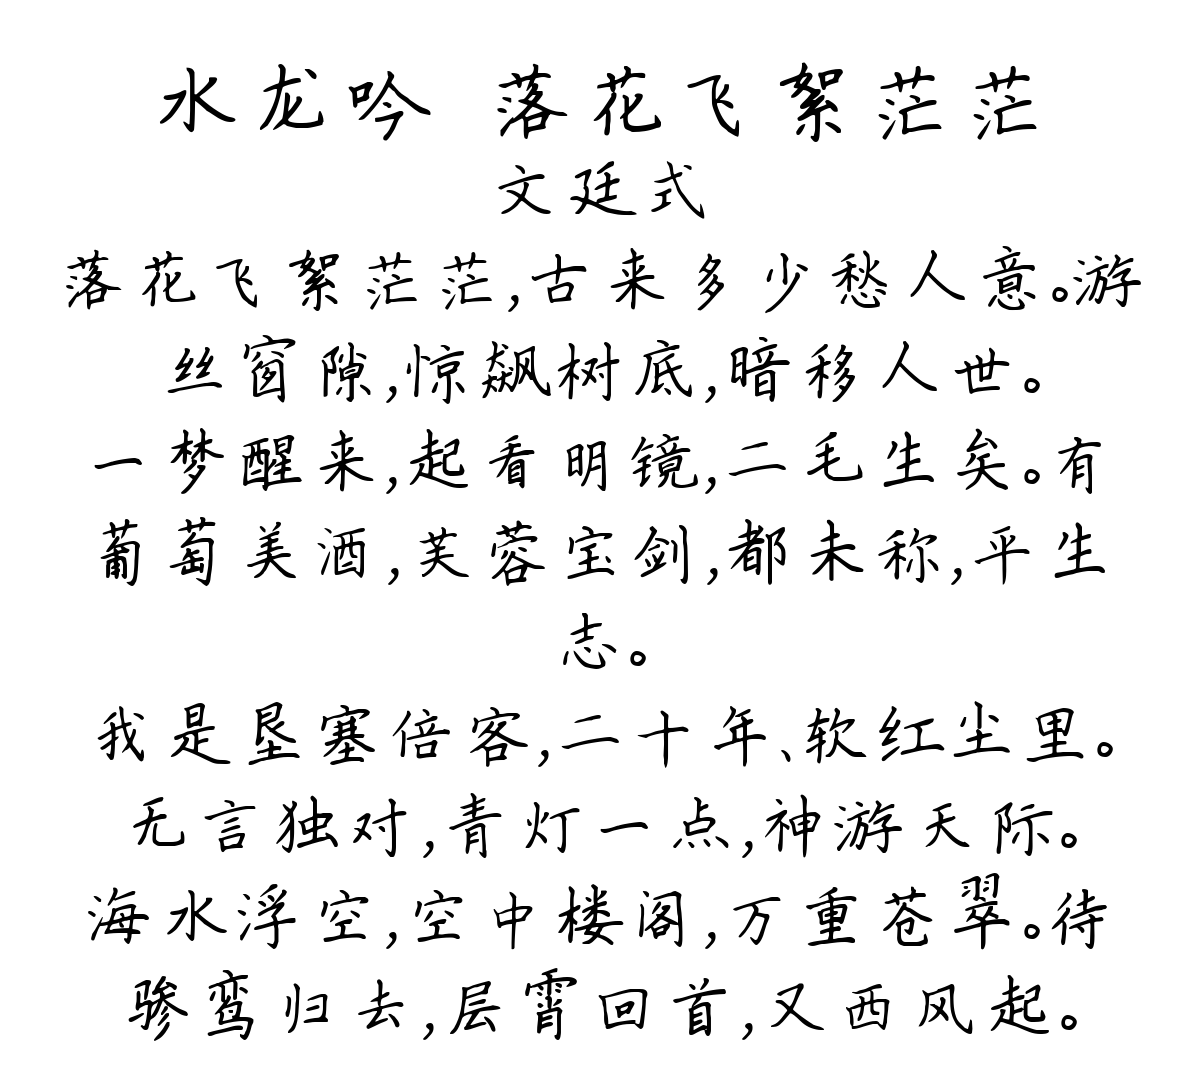 水龙吟 落花飞絮茫茫
文廷式
落花飞絮茫茫,古来多少愁人意。游
丝窗隙,惊飙树底,暗移人世。
一梦醒来,起看明镜,二毛生矣。有
葡萄美酒,芙蓉宝剑,都未称,平生
志。
我是垦塞倍客,二十年、软红尘里。
无言独对,青灯一点,神游天际。
海水浮空,空中楼阁,万重苍翠。待
骖鸾归去,层霄回首,又西风起。